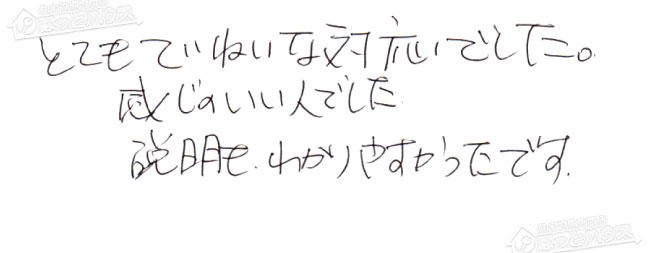 とてもていねいな対応でした。
感じのいい人でした
説明も、わかりやすかったです.